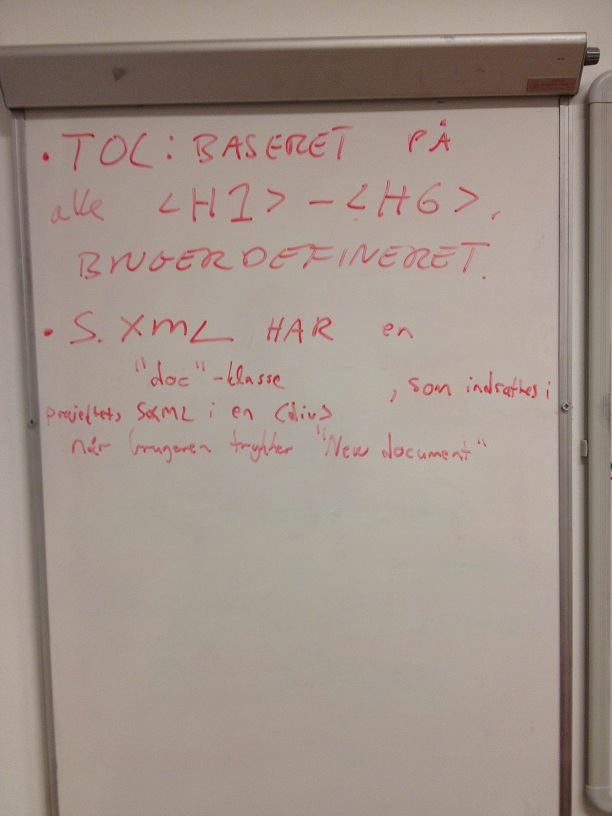 • TOC: BASERET PÅ
alle <H1> - <H6>,
BRUGERDEFINERET.
• S.XML HAR en
"doc"-klasse, som indsættes i
projektets SXML i en
når brugeren trykker "New document"